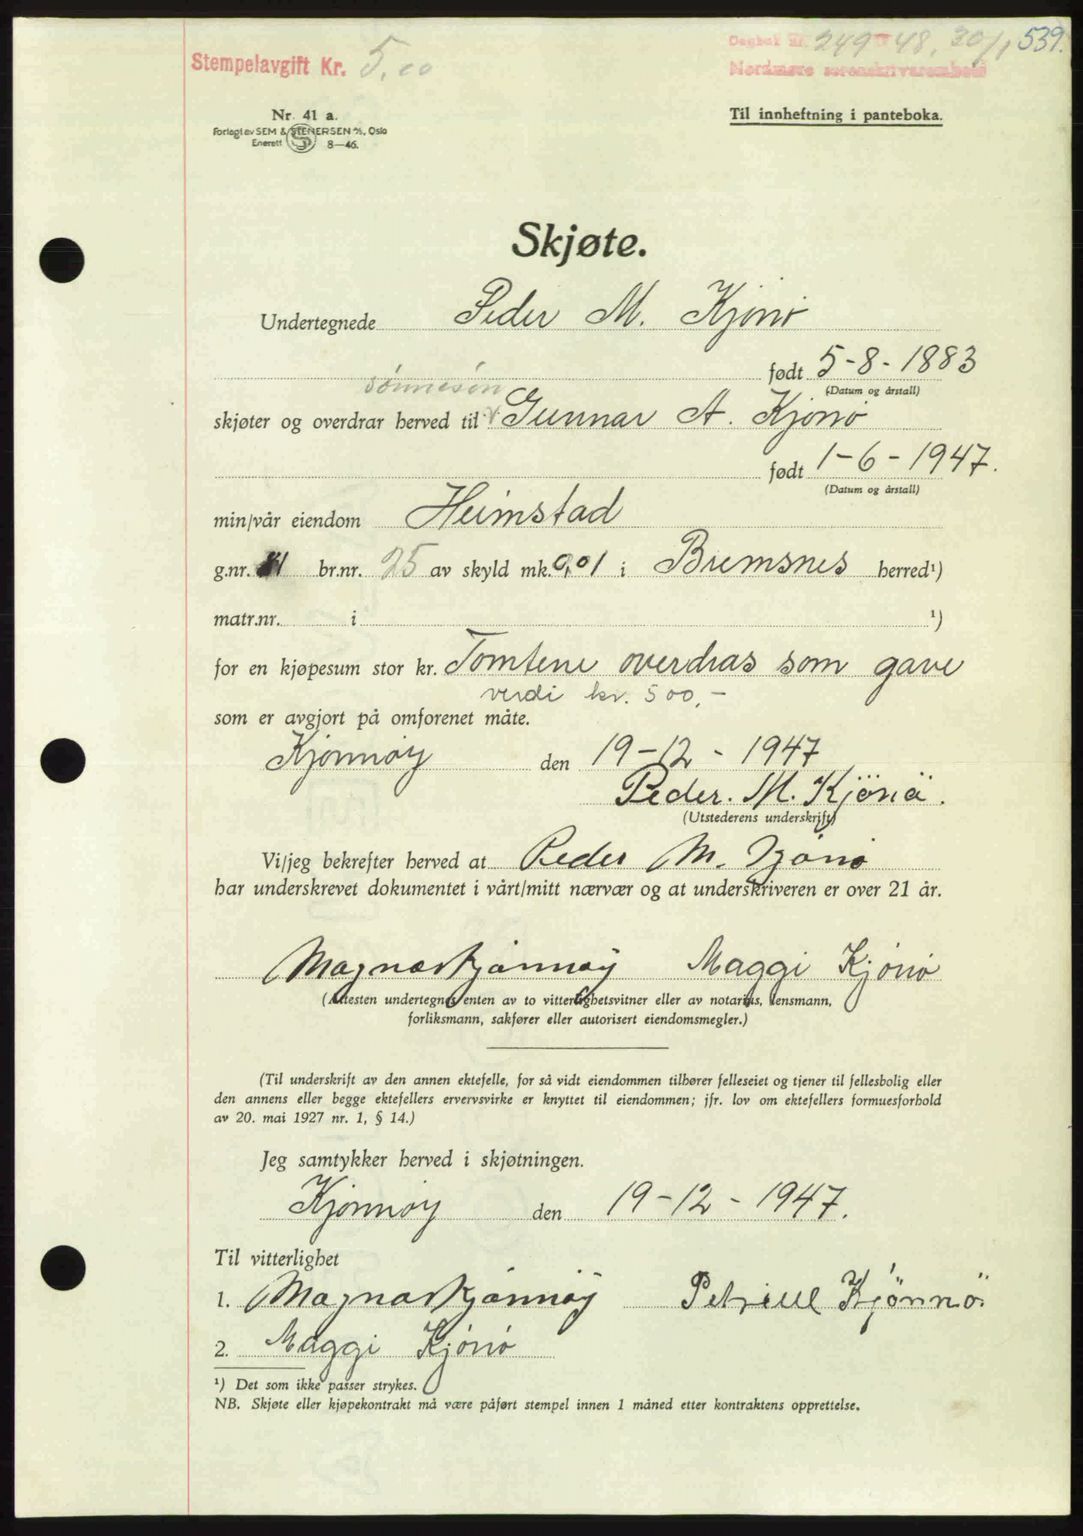 Stempelavgift Kr. 5,00
Dagbok nr. 249 48, 30/1 539.
Nordmøre sorenskriverembete
Nr. 41 a.
Forlagt av SEM & STENERSEN A/S, Oslo
Enerett 8—46.
Til innheftning i panteboka.
Skjøte.
Undertegnede Peder M. Kjönö
født 5-8-1883
(Datum og årstall)
sönnesön
skjøter og overdrar herved til Gunnar A. Kjönö
født 1-6-1947.
(Datum og årstall)
min/vår eiendom Heimstad
g.nr. br.nr. 25 av skyld mk. 0,01 i Bremsnes herred¹)
matr.nr. i ¹)
for en kjøpesum stor kr. Tomtene overdras som gave
verdi kr. 500,-
som er avgjort på omforenet måte.
Kjönnöy den 19-12-1947
Peder. M. Kjönö.
(Utstederens underskrift)
Vi/jeg bekrefter herved at Peder M. Kjönö
har underskrevet dokumentet i vårt/mitt nærvær og at underskriveren er over 21 år.
Magnar Kjönnöy Maggi Kjönö
(Attesten undertegnes enten av to vitterlighetsvitner eller av notarius, lensmann,
forliksmann, sakfører eller autorisert eiendomsmegler.)
(Til underskrift av den annen ektefelle, for så vidt eiendommen tilhører felleseiet og tjener til fellesbolig eller
den annens eller begge ektefellers ervervsvirke er knyttet til eiendommen; jfr. lov om ektefellers formuesforhold
av 20. mai 1927 nr. 1, § 14.)
Jeg samtykker herved i skjøtningen.
Kjönnöy den 19-12-1947.
Til vitterlighet
1. Magnar Kjönnöy Kjönnö
2. Maggi Kjönö
¹) Det som ikke passer strykes.
NB. Skjøte eller kjøpekontrakt må være påført stempel innen 1 måned etter kontraktens opprettelse.